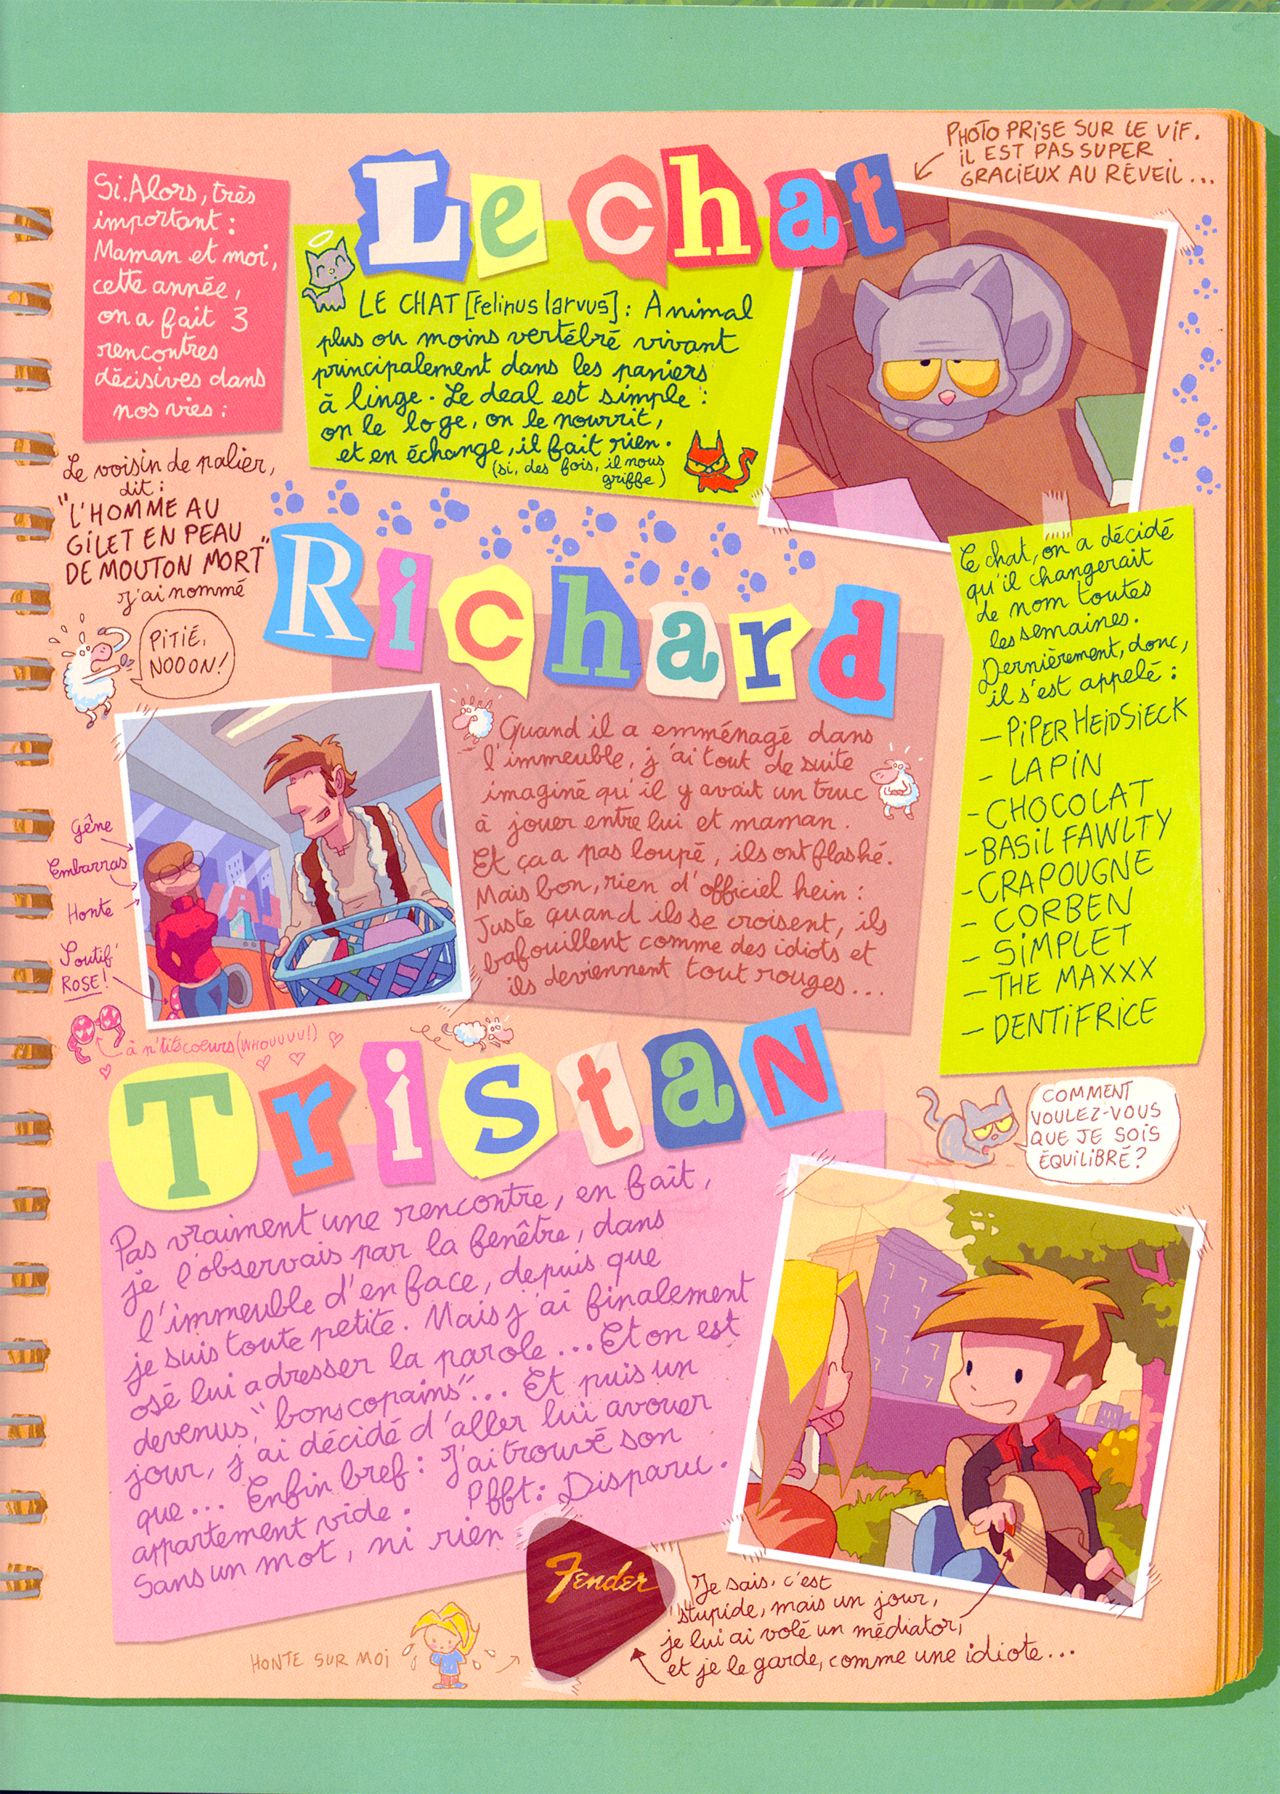 PHOTO PRISE SUR LE VIF.
IL EST PAS SUPER
GRACIEUX AU RÉVEIL...
Si. Alors, très
important :
Maman et moi,
cette année,
on a fait 3
rencontres
décisives dans
nos vies :
Le chat
LE CHAT [Felinus larvus] : Animal
plus ou moins vertébré vivant
principalement dans les paniers
à linge. Le deal est simple :
on le loge, on le nourrit,
et en échange, il fait rien.
(si, des fois, il nous
griffe)
Le chat, on a décidé
qu'il changerait
de nom toutes
les semaines.
Dernièrement, donc,
il s'est appelé :
- PIPER HEIDSIECK
- LAPIN
- CHOCOLAT
- BASIL FAWLTY
- CRAPOUGNE
- CORBEN
- SIMPLET
- THE MAXXX
- DENTIFRICE
COMMENT
VOULEZ-VOUS
QUE JE SOIS
ÉQUILIBRÉ ?
Le voisin de palier,
dit :
"L'HOMME AU
GILET EN PEAU
DE MOUTON MORT"
J'ai nommé
Richard
PITIÉ,
NOOON !
Quand il a emménagé dans
l'immeuble, j'ai tout de suite
imaginé qu'il y avait un truc
à jouer entre lui et maman.
Et ça a pas loupé, ils ont flashé.
Mais bon, rien d'officiel hein :
Juste quand ils se croisent, ils
bafouillent comme des idiots et
ils deviennent tout rouges...
Gêne
Embarras
Honte
Soutif
ROSE !
à p'tits coeurs (WHOUUUU !)
Tristan
Pas vraiment une rencontre, en fait,
je l'observais par la fenêtre, dans
l'immeuble d'en face, depuis que
je suis toute petite. Mais j'ai finalement
osé lui adresser la parole... Et on est
devenus "bons copains"... Et puis un
jour, j'ai décidé d'aller lui avouer
que... Enfin bref : J'ai trouvé son
appartement vide. Pfft : Disparu.
Sans un mot, ni rien
Fender
Je sais, c'est
stupide, mais un jour,
je lui ai volé un médiator,
et je le garde, comme une idiote...
HONTE SUR MOI